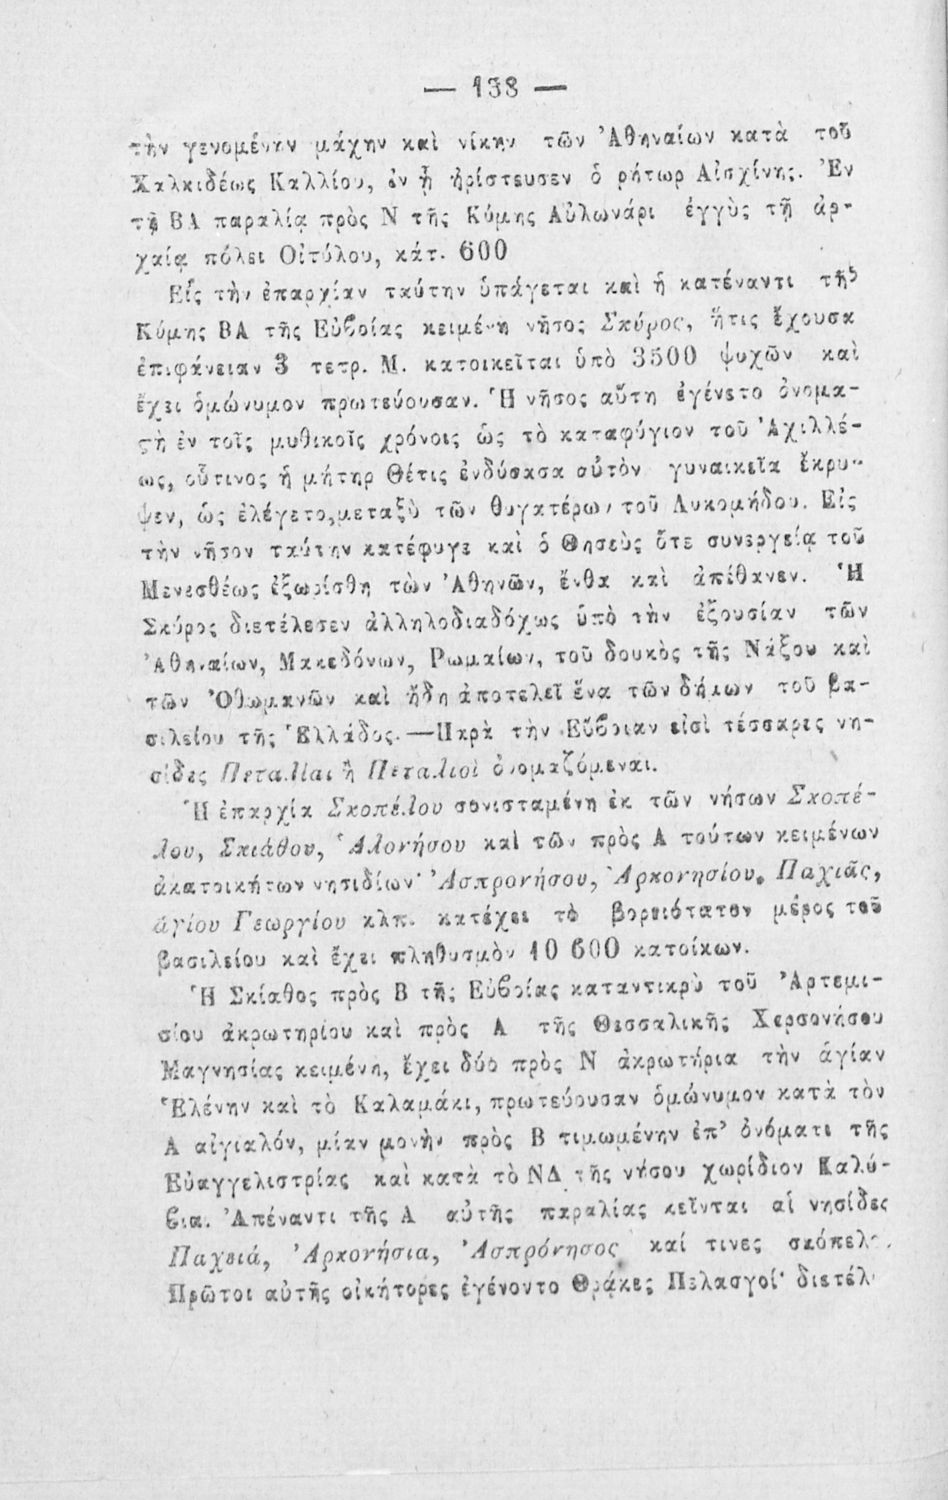 — 138 —
τὴν γενομένην μάχην καὶ νίκην τῶν Ἀθηναίων κατὰ τοῦ
Χαλκιδέως Καλλίου, ἐν ᾗ ἠρίστευσεν ὁ ῥήτωρ Αἰσχίνης. Ἐν
τῇ ΒΑ παραλίᾳ πρὸς Ν τῆς Κύμης Αὐλωνάρι ἐγγὺς τῇ ἀρ-
χαίᾳ πόλει Οἰτύλου, κάτ. 600
Εἰς τὴν ἐπαρχίαν ταύτην ὑπάγεται καὶ ἡ κατέναντι τῆς
Κύμης ΒΑ τῆς Εὐβοίας κειμένη νῆσος Σκύρος, ἥτις ἔχουσα
ἐπιφάνειαν 3 τετρ. Μ. κατοικεῖται ὑπὸ 3500 ψυχῶν καὶ
ἔχει ὁμώνυμον πρωτεύουσαν. Ἡ νῆσος αὕτη ἐγένετο ὀνομα-
στὴ ἐν τοῖς μυθικοῖς χρόνοις ὡς τὸ καταφύγιον τοῦ Ἀχιλλέ-
ως, οὗτινος ἡ μήτηρ Θέτις ἐνδύσασα αὐτὸν γυναικεῖα ἔκρυ-
ψεν, ὡς ἐλέγετο, μεταξὺ τῶν θυγατέρων τοῦ Λυκομήδου. Εἰς
τὴν νῆσον ταύτην κατέφυγε καὶ ὁ Θησεὺς ὅτε συνεργείᾳ τοῦ
Μενεσθέως ἐξωρίσθη τῶν Ἀθηνῶν, ἔνθα καὶ ἀπέθανεν. Ἡ
Σκύρος διετέλεσεν ἀλληλοδιαδόχως ὑπὸ τὴν ἐξουσίαν τῶν
Ἀθηναίων, Μακεδόνων, Ῥωμαίων, τοῦ δουκὸς τῆς Νάξου καὶ
τῶν Ὀθωμανῶν καὶ ἤδη ἀποτελεῖ ἕνα τῶν δήμων τοῦ βα-
σιλείου τῆς Ἑλλάδος.—Παρὰ τὴν Εὔβοιαν εἰσὶ τέσσαρες νη-
σῖδες Πεταλίαι ἢ Πεταλιοὶ ὀνομαζόμεναι.
Ἡ ἐπαρχία Σκοπέλου συνισταμένη ἐκ τῶν νήσων Σκοπέ-
λου, Σκιάθου, Ἁλονήσου καὶ τῶν πρὸς Α τούτων κειμένων
ἀκατοικήτων νησιδίων· Ἀσπρονήσου, Ἀρκονησίου, Παχιᾶς,
ἁγίου Γεωργίου κλπ. κατέχει τὸ βορειότατον μέρος τοῦ
βασιλείου καὶ ἔχει πληθυσμὸν 10 600 κατοίκων.
Ἡ Σκίαθος πρὸς Β τῆς Εὐβοίας καταντικρὺ τοῦ Ἀρτεμι-
σίου ἀκρωτηρίου καὶ πρὸς Α τῆς Θεσσαλικῆς Χερσονήσου
Μαγνησίας κειμένη, ἔχει δύο πρὸς Ν ἀκρωτήρια τὴν ἁγίαν
Ἑλένην καὶ τὸ Καλαμάκι, πρωτεύουσαν ὁμώνυμον κατὰ τὸν
Α αἰγιαλόν, μίαν μονὴν πρὸς Β τιμωμένην ἐπ’ ὀνόματι τῆς
Εὐαγγελιστρίας καὶ κατὰ τὸ ΝΔ τῆς νήσου χωρίδιον Καλύ-
βια. Ἀπέναντι τῆς Α αὐτῆς παραλίας κεῖνται αἱ νησίδες
Παχειά, Ἀρκονήσια, Ἀσπρόνησος καί τινες σκόπελοι.
Πρῶτοι αὐτῆς οἰκήτορες ἐγένοντο Θρᾷκες Πελασγοί· διετέλ